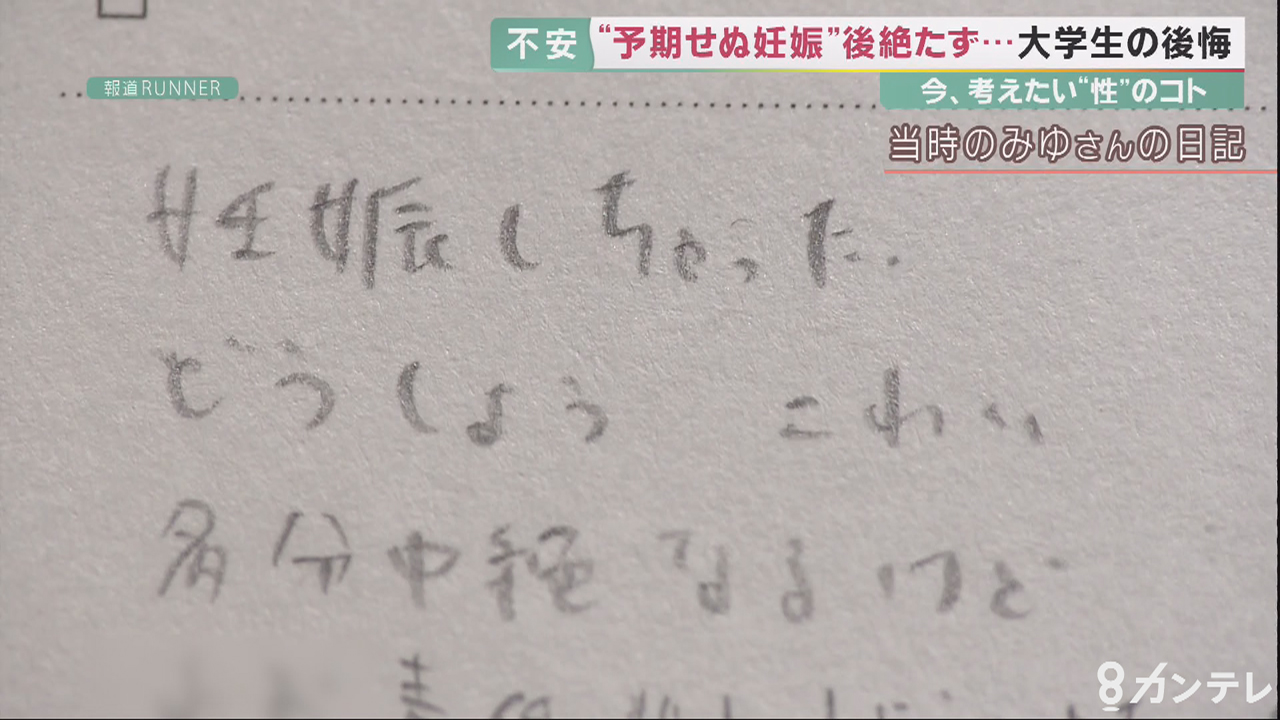 不安 “予期せぬ妊娠”後絶たず…大学生の後悔
報道RUNNER
今、考えたい“性”のコト
当時のみゆさんの日記
妊娠しちゃった.
どうしよう こわい
多分中絶なるけど
8カンテレ